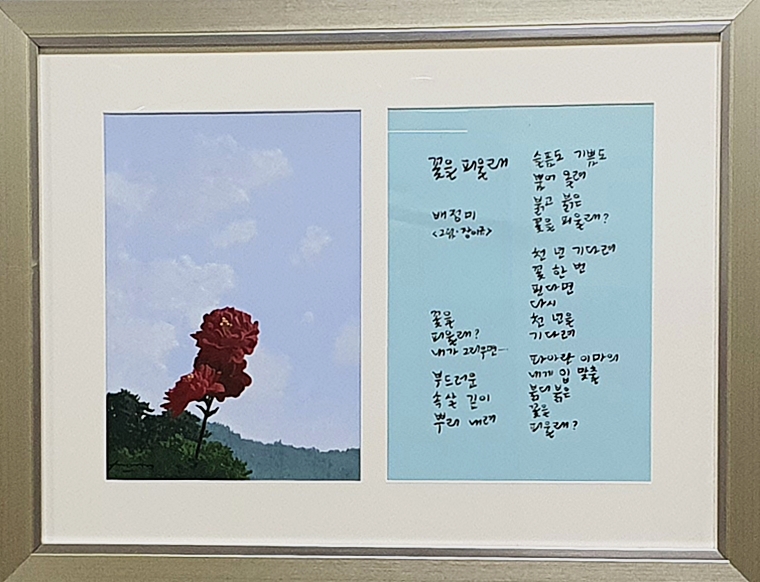 꽃을 피울래
배정미
<그림·장이규>
꽃을
피울래?
내가 그리우면…
부드러운
속살 깊이
뿌리 내려
슬픔도 기쁨도
뿜어 올려
붉고 붉은
꽃을 피울래?
천 년 기다려
꽃 한 번
핀다면
다시
천 년을
기다려
파아란 이마의
내게 입 맞출
붉디붉은
꽃을
피울래?